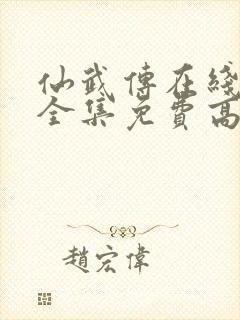 仙武傳在綫
全集免費高
趙宏偉